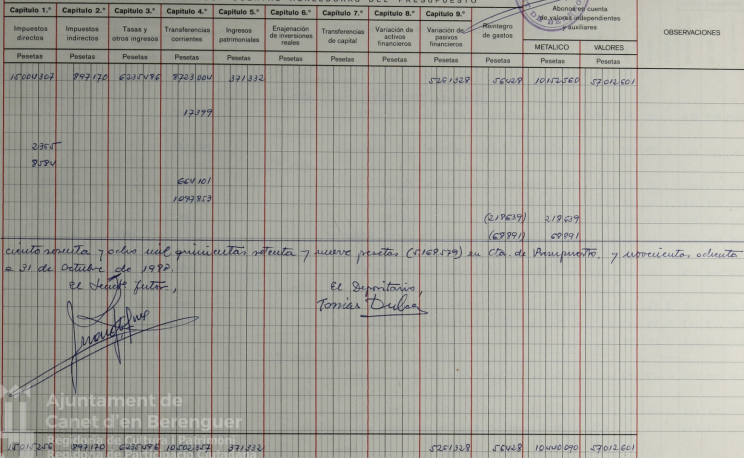 CUENTAS ACREEDORAS DEL PRESUPUESTO
Capítulo 1.º Capítulo 2.º Capítulo 3.º Capítulo 4.º Capítulo 5.º Capítulo 6.º Capítulo 7.º Capítulo 8.º Capítulo 9.º Reintegro de gastos Abonos en cuenta de valores independientes y auxiliares OBSERVACIONES
Impuestos directos Impuestos indirectos Tasas y otros ingresos Transferencias corrientes Ingresos patrimoniales Enajenación de inversiones reales Transferencias de capital Variación de activos financieros Variación de pasivos financieros METALICO VALORES
Pesetas Pesetas Pesetas Pesetas Pesetas Pesetas Pesetas Pesetas Pesetas Pesetas Pesetas Pesetas
15004307 897170 6235486 8723004 371332 5261328 56428 10152560 57012601
17399
2365
8584
664101
1097853
(218639) 218639
(68891) 68891
ciento sesenta y ocho mil quinientas setenta y nueve pesetas (5168579) en Cta. de Presupuesto, y novecientas ochenta
a 31 de Octubre de 1988.
El
El Depositario,
Tomás
Ajuntament de
Canet d'en Berenguer
Regidoria de Cultura i Patrimoni
15015256 897170 6235486 10502357 371332 5261328 56428 10440090 57012601